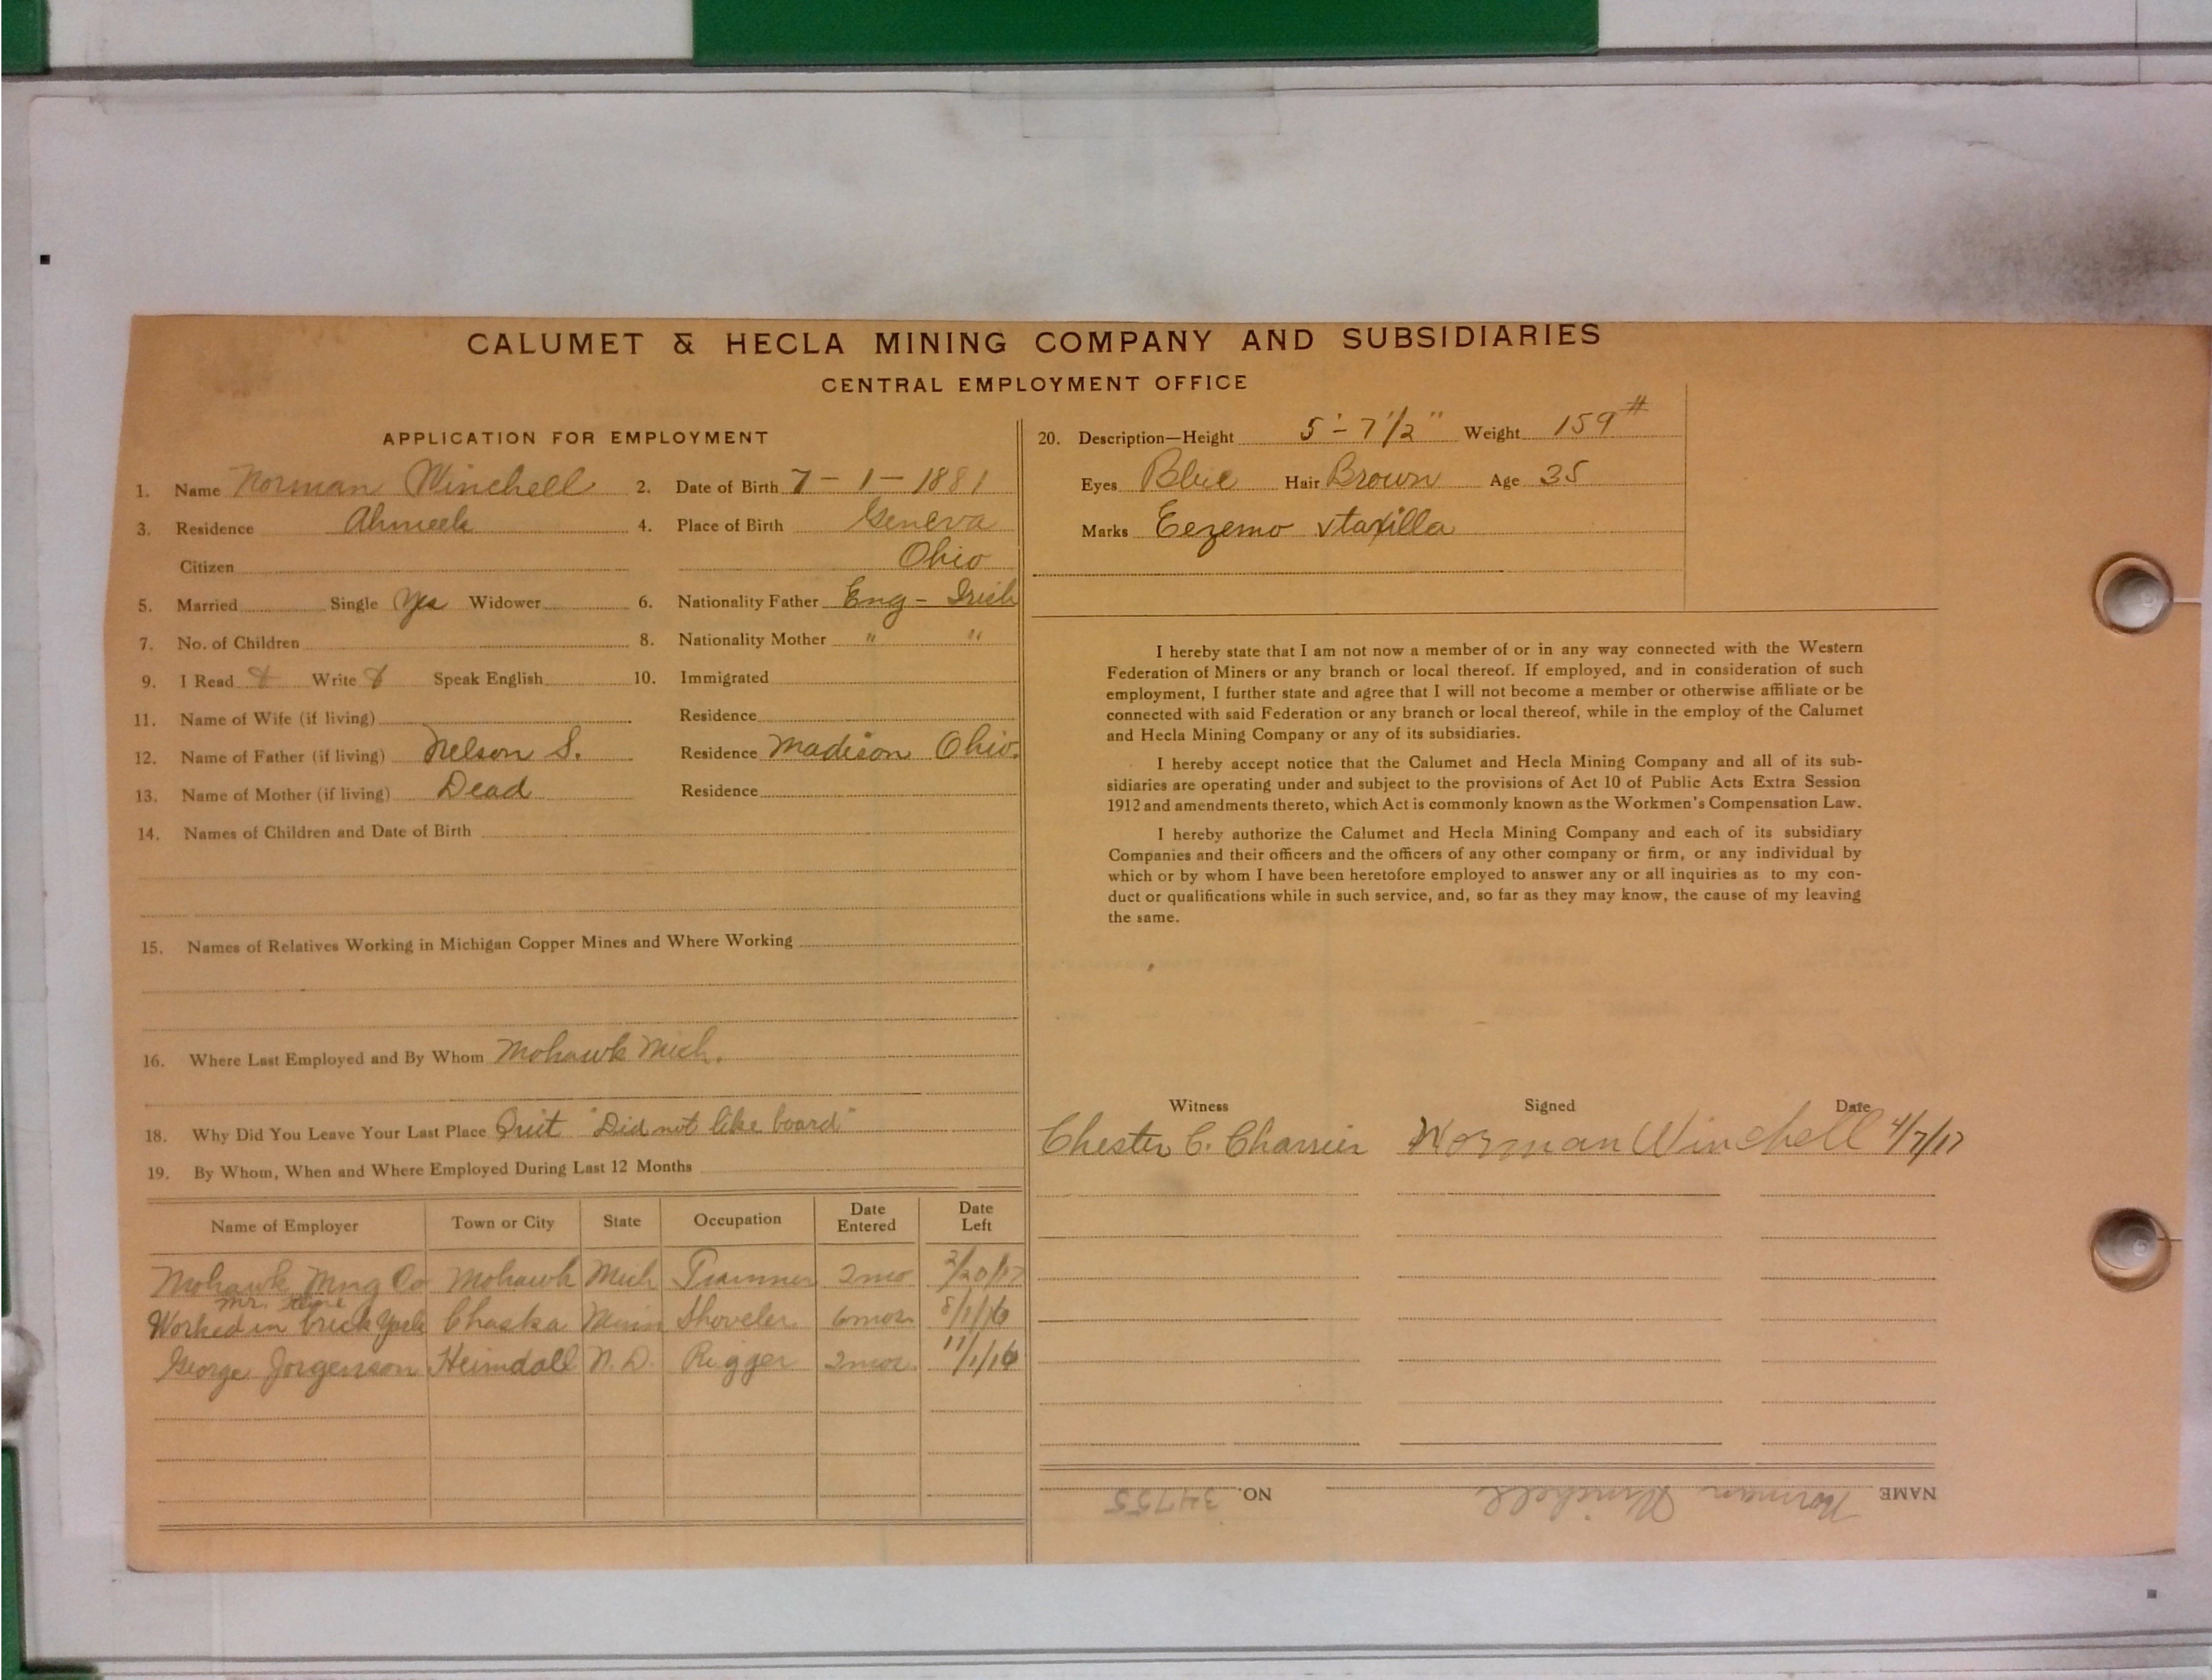 CALUMET & HECLA MINING COMPANY AND SUBSIDIARIES
CENTRAL EMPLOYMENT OFFICE
APPLICATION FOR EMPLOYMENT
1. Name Norman Winchell 2. Date of Birth 7-1-1881
3. Residence Ahmeek 4. Place of Birth Geneva
Citizen Ohio
5. Married Single Yes Widower 6. Nationality Father Eng - Irish
7. No. of Children 8. Nationality Mother " "
9. I Read Write Speak English 10. Immigrated
11. Name of Wife (if living) Residence
12. Name of Father (if living) Nelson S. Residence Madison Ohio.
13. Name of Mother (if living) Dead Residence
14. Names of Children and Date of Birth
15. Names of Relatives Working in Michigan Copper Mines and Where Working
16. Where Last Employed and By Whom Mohawk Mich.
18. Why Did You Leave Your Last Place Quit "Did not like board"
19. By Whom, When and Where Employed During Last 12 Months
Name of Employer Town or City State Occupation Date Entered Date Left
Mohawk Mng Co Mohawk Mich Trammer 2mo /20/17
Mr.
Worked in brick yard Chaska Minn Shoveler 6mos 8/1/16
George Jorgenson Heimdall N.D. Rigger 2mos. 11/1/16
20. Description—Height 5'-7 1/2" Weight 159#
Eyes Blue Hair Brown Age 35
Marks Eczemo
I hereby state that I am not now a member of or in any way connected with the Western
Federation of Miners or any branch or local thereof. If employed, and in consideration of such
employment, I further state and agree that I will not become a member or otherwise affiliate or be
connected with said Federation or any branch or local thereof, while in the employ of the Calumet
and Hecla Mining Company or any of its subsidiaries.
I hereby accept notice that the Calumet and Hecla Mining Company and all of its sub-
sidiaries are operating under and subject to the provisions of Act 10 of Public Acts Extra Session
1912 and amendments thereto, which Act is commonly known as the Workmen's Compensation Law.
I hereby authorize the Calumet and Hecla Mining Company and each of its subsidiary
Companies and their officers and the officers of any other company or firm, or any individual by
which or by whom I have been heretofore employed to answer any or all inquiries as to my con-
duct or qualifications while in such service, and, so far as they may know, the cause of my leaving
the same.
Witness Signed Date
Chester C. Charrier Norman Winchell 4/7/17
NAME Norman Winchell NO. 34755